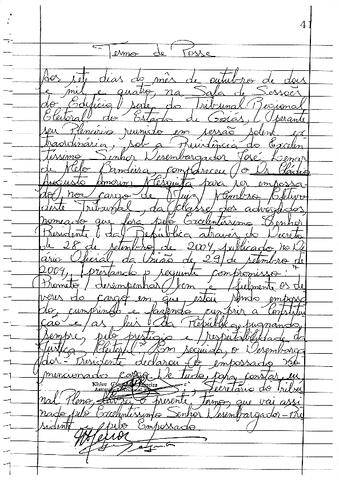 41
Termo de Posse
Aos sete dias do mês de outubro de dois
e mil e quatro, na Sala de Sessões
do Edifício sede do Tribunal Regional
Eleitoral do Estado de Goiás, perante
seu Plenário reunido em sessão solene ex
traordinária, sob a Presidência do Excelen
tíssimo Senhor Desembargador José Lenar
de Melo Bandeira, compareceu o Dr. Cláudio
Augusto Amorim Mesquita para ser empossa
do no cargo de Juiz Membro Efetivo
deste Tribunal, da classe dos advogados
nomeado que fora pelo Excelentíssimo Senhor
Presidente da República através do Decreto
de 28 de setembro de 2004, publicado no Di
ário Oficial da União de 29 de setembro de
2004, prestando o seguinte compromisso: "
Prometo desempenhar bem e fielmente os de
veres do cargo em que estou sendo empossa
do, cumprindo e fazendo cumprir a Constitui
ção e as leis da República, pugnando
sempre pelo prestígio e respeitabilidade da
Justiça Eleitoral". Em seguida, o Desembarga
dor-Presidente declarou o empossado no
mencionado cargo. De tudo, para constar, eu
Secretário do Tribu
nal Pleno, lavrei o presente termo que vai assi
nado pelo Excelentíssimo Senhor Desembargador-Pre
sidente e pelo Empossado.